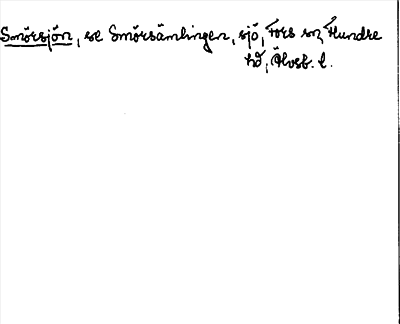 Smörsjön, se Smörsämlingen, sjö, Fors sn, Flundre
hd, Älvsb. l.